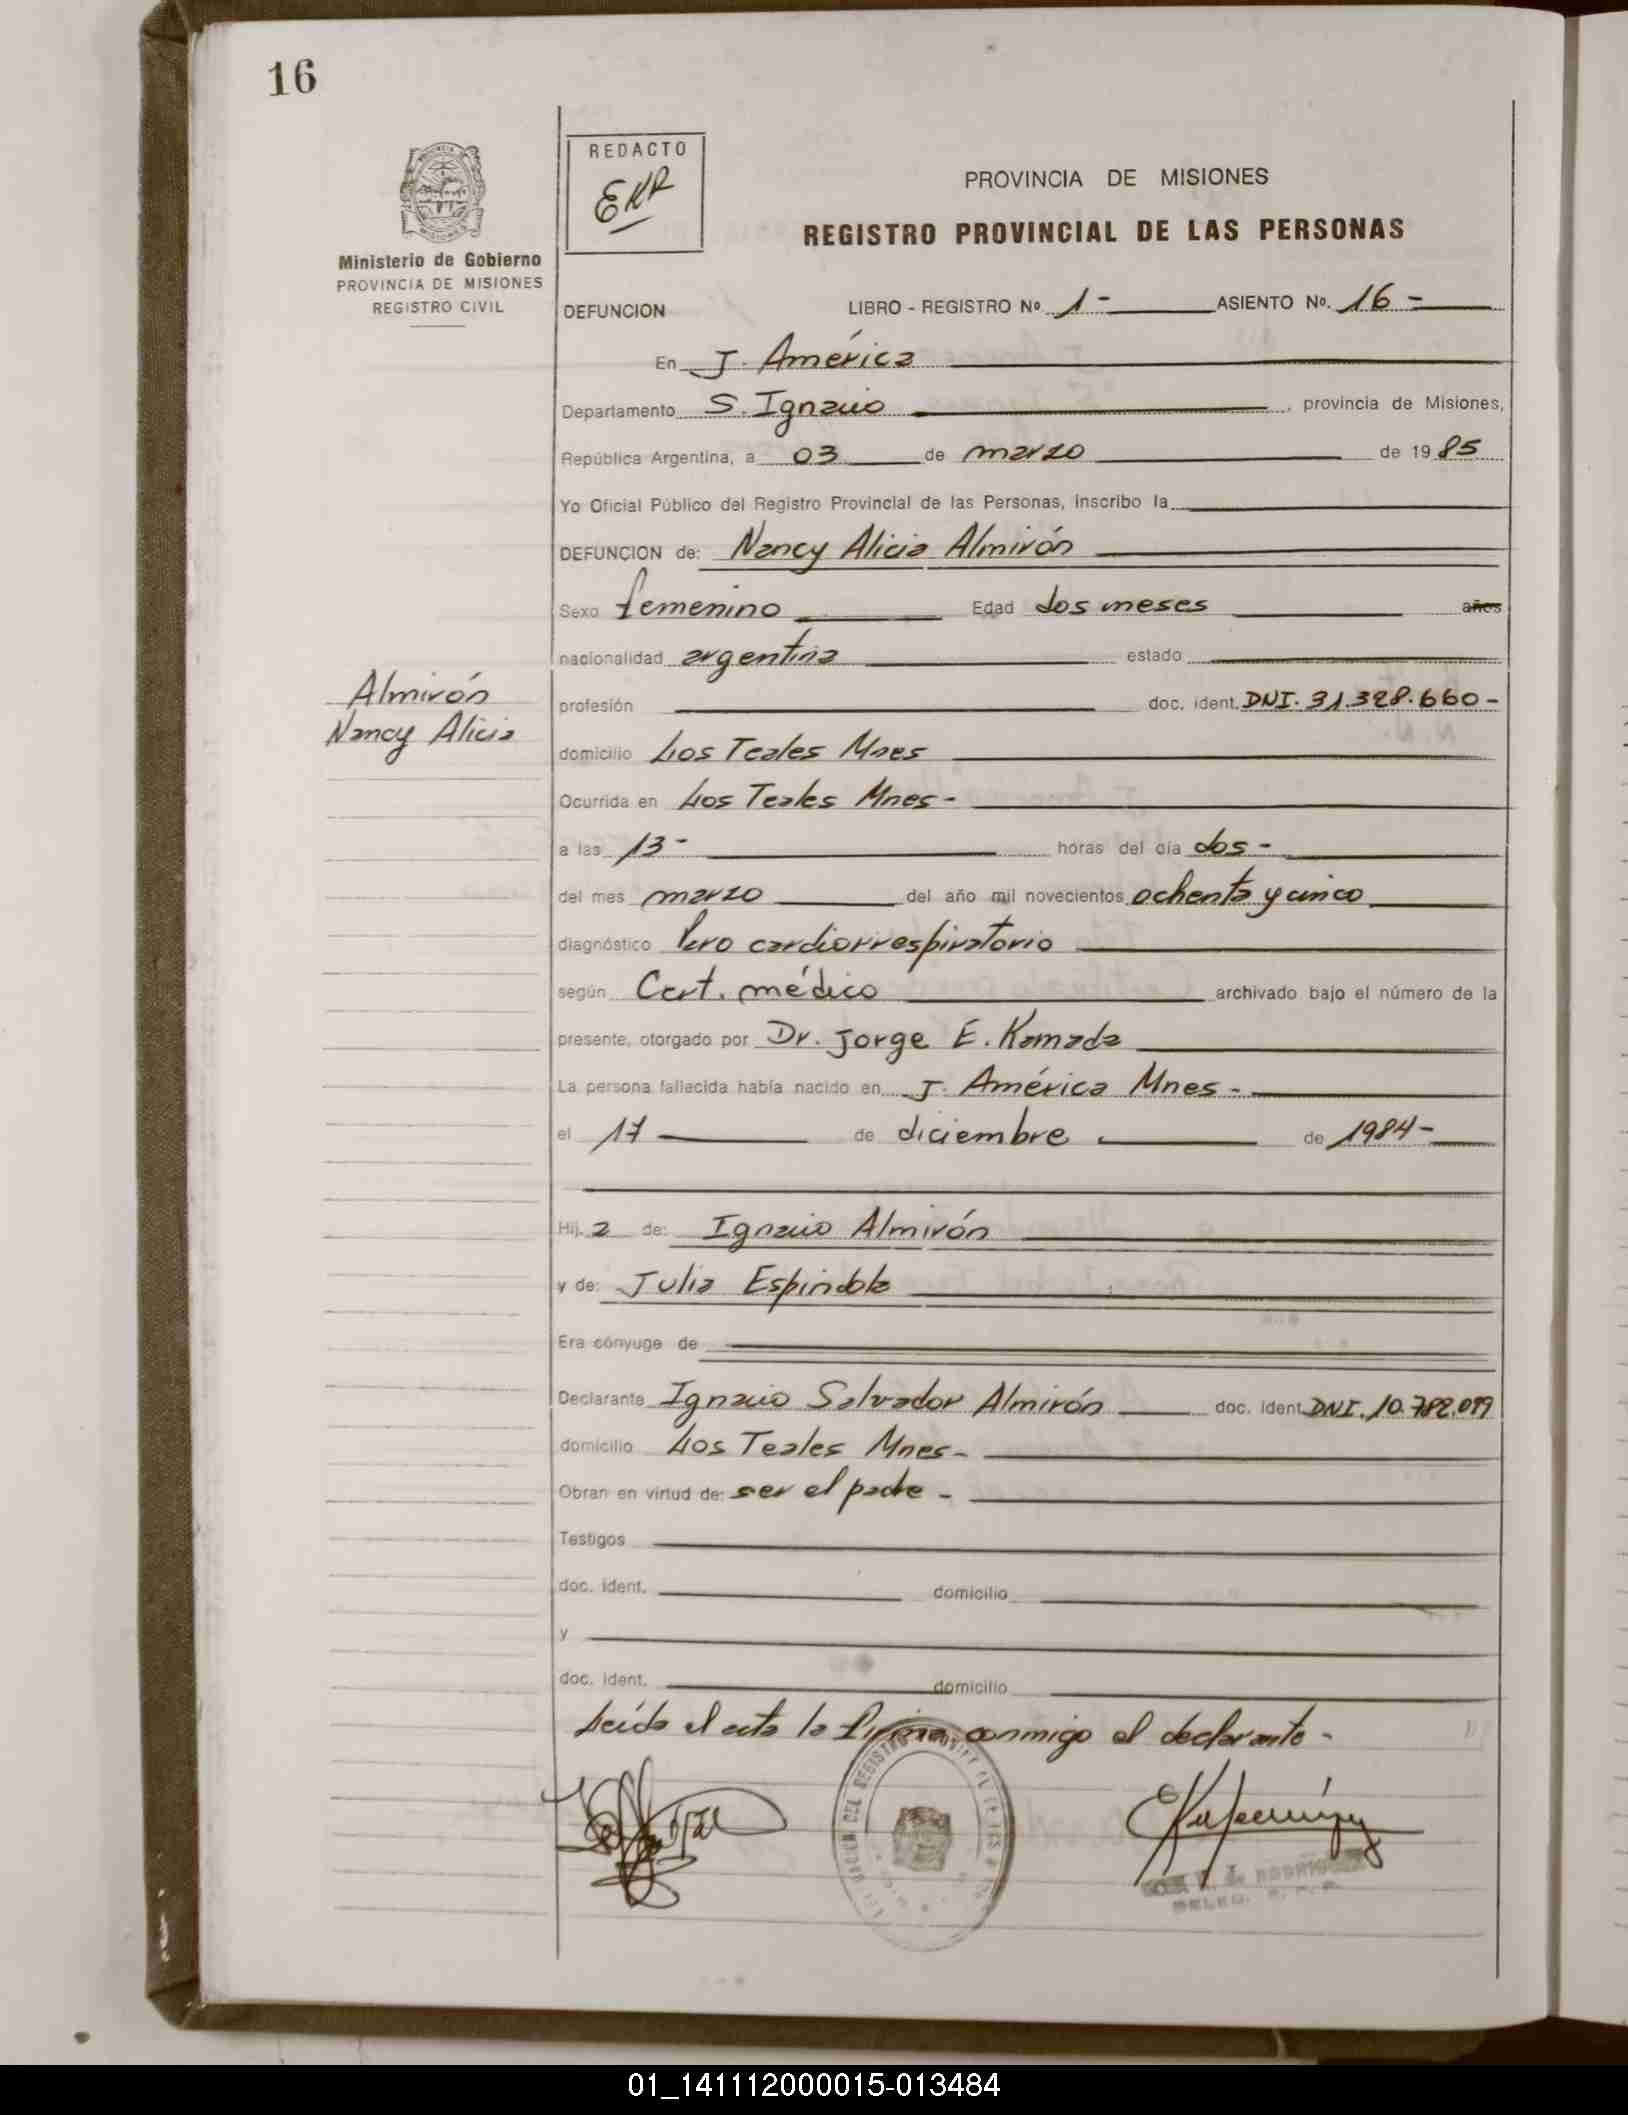 16
REDACTO
EKR
Ministerio de Gobierno
PROVINCIA DE MISIONES
REGISTRO CIVIL
PROVINCIA DE MISIONES
REGISTRO PROVINCIAL DE LAS PERSONAS
DEFUNCION LIBRO - REGISTRO Nº 1- ASIENTO Nº. 16-
En J. América
Departamento S. Ignacio, provincia de Misiones,
República Argentina, a 03 de marzo de 1985
Yo Oficial Público del Registro Provincial de las Personas, inscribo la
DEFUNCION de: Nancy Alicia Almirón
Sexo femenino Edad dos meses años
nacionalidad argentina estado
Almirón
Nancy Alicia
profesión doc. ident. DNI. 31.328.660-
domicilio Los Teales Mnes
Ocurrida en Los Teales Mnes-
a las 13- horas del día dos-
del mes marzo del año mil novecientos ochenta y cinco
diagnóstico Paro cardiorrespiratorio
según Cert. médico archivado bajo el número de la
presente, otorgado por Dr. Jorge E. Kamada
La persona fallecida había nacido en J. América Mnes-
el 17 de diciembre de 1984-
Hij a de: Ignacio Almirón
y de: Julia Espindola
Era cónyuge de
Declarante Ignacio Salvador Almirón doc. ident. DNI. 10.782.099
domicilio Los Teales Mnes-
Obran en virtud de: ser el padre-
Testigos
doc. ident. domicilio
y
doc. ident. domicilio
Leída el acta la firma conmigo el declarante-
01_141112000015-013484